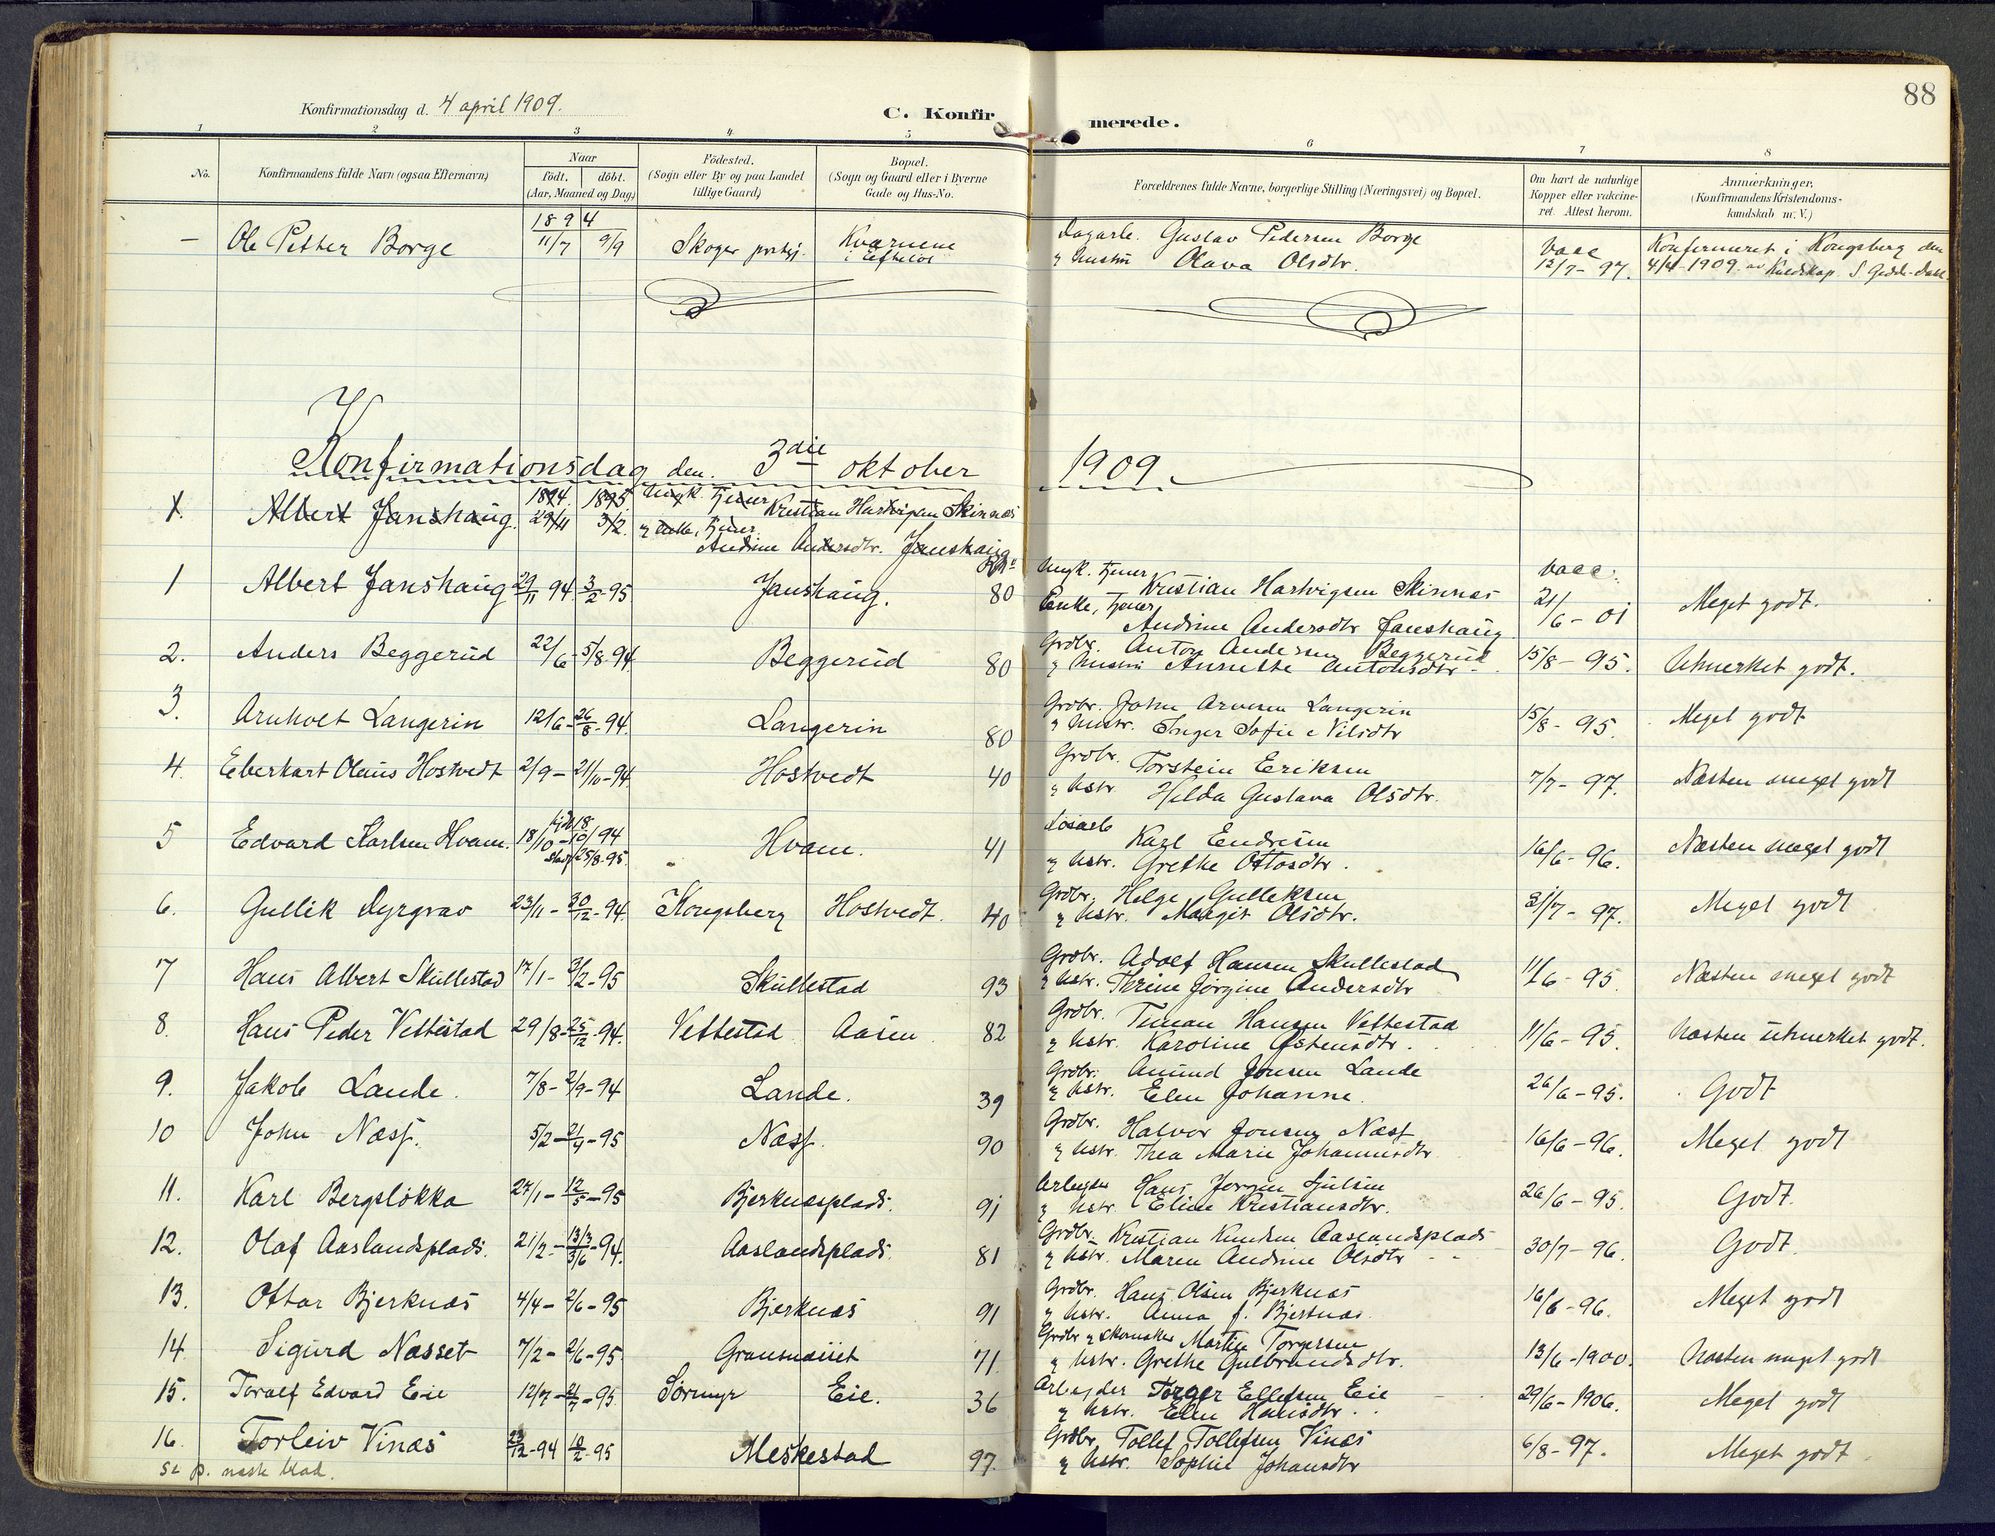 88
Konfirmationsdag d. 4 april 1909.
C. Konfirmerede.
1 2 3 4 5 6 7 8
No.
Konfirmandens fulde Navn (ogsaa Efternavn)
Naar
født. døbt.
(Aar, Maaned og Dag)
Födested.
(Sogn eller By og paa Landet
tillige Gaard)
Bopæl.
(Sogn og Gaard eller i Byerne
Gade og Hus-No.
Forældrenes fulde Navne, borgerlige Stilling (Næringsvei) og Bopæl.
Om havt de naturlige
Kopper eller vakcine-
ret. Attest herom.
Anmærkninger.
(Konfirmandens Kristendoms-
kundskab m. V.)
1894
– Ole Petter Borge 11/7 9/9 Skoger Kværnene i Efteløt Dagarb. Gustav Pedersen Borge
og hustru Olava Olsdtr. vacc 12/7-97. Konfirmeret i Kongsberg den
4/4-1909. Kundskap
Konfirmationsdag den 3die oktober 1909
1. Albert Janshaug. 1894 29/11 1895 3/2. Ungk. tjener Kristian Hartvigsen Skinnæs
og Enke, tjener Andrine Andersdtr. Janshaug
1 Albert Janshaug 29/11 94 3/2-95 Janshaug. 80 Ungk. tjener Kristian Hartvigsen Skinnæs
Enke, tjener Andrine Andersdtr Janshaug vacc. 21/6-01 Meget godt.
2. Anders Beggerud 22/6 - 5/8-94 Beggerud 80 Grdbr. Anton Andersen Beggerud
og hustru Annette Antonsdtr 15/8-95. Utmerket godt.
3. Arnholt Langerin 12/6 - 26/8-94. Langerin 80 Grdbr. John Arvesen Langerin
og hustr. Inger Sofie Nilsdtr 15/8-95. Meget godt
4. Eberhart Olaus Hostvedt 2/9 - 21/10-94 Hostvedt 40 Grdbr. Torstein Eriksen
og hstr. Hilda Gustava Olsdtr. 7/7-97. Næsten meget godt
5 Edvard Karlsen Hvam. 18/10 - hjdb 18/10/94 stadf 25/8-95 Hvam. 41 Løsarb Karl Endresen
og hstr. Grethe Ottosdtr. 16/6-96. Næsten meget godt
6. Gullik Dyrgrav 23/11 - 30/12-94. Kongsberg Hostvedt. 40 Grdbr. Helge Gulleksen
og hstr. Margit Olsdtr. 3/7-97. Meget godt
7 Hans Albert Skullestad 17/1 - 3/2-95 Skullestad 93 Grdbr. Adolf Hansen Skullestad
og hstr. Thrine Jørgine Andersdtr 11/6-95. Næsten meget godt
8. Hans Peder Vettestad 29/8 - 25/12-94. Vettestad Aasen 82 Grdbr. Timan Hansen Vettestad
og hstr. Karoline Østensdtr. 11/6-95. Næsten utmerket godt.
9. Jakob Lande. 7/8 - 2/9-94 Lande. 39 Grdbr. Amund Jonsen Lande
og hstr. Elen Johanne. 26/6-95. Godt
10 John Næss. 5/2 - 21/4-95 Næss. 90 Grdbr. Halvor Jonsen Næss
og hstr. Thea Marie Johannesdtr. 16/6-96. Meget godt
11. Karl Bergsløkka 27/1 - 12/5-95 Bjerknæsplads. 91 Arbeyder Hans Jørgen Juliusen
og hstr. Eline Kristiansdtr. 26/6-95. Godt.
12. Olaf Aaslandsplads. 21/2 - 13/3 3/6-94. Aaslandsplads. 81 Grdbr. Kristian Knudsen Aaslandsplads
og hstr. Maren Andrine Olsdtr 30/7-96. Godt.
13. Ottar Bjerknæs 4/4 - 2/6-95 Bjerknæs 91 Grdbr. Hans Olsen Bjerknæs
og hstr. Anna f. Bjerknæs. 16/6-96. Meget godt
14. Sigurd Næsset 7/2 - 2/6-95. 71. Grdbr og skomaker Martin Torgersen
og hstr. Grethe Gulbrandsdtr. 13/6-1900. Næsten meget godt
15. Toralf Edvard Eie 12/7 - 21/7-95. Sørmyr Eie. 36 Arbejder Torger Ellefsen Eie
og hstr. Elen Hansdtr. 29/6-1906. Meget godt
16. Torleiv Vinæs 23/12-94 10/2-95 Meskestad 97. Grdbr Tollef Tollefsen Vinæs
og hstr. Sophie Johansdtr 6/8-97. Meget godt
Se p. næste blad.